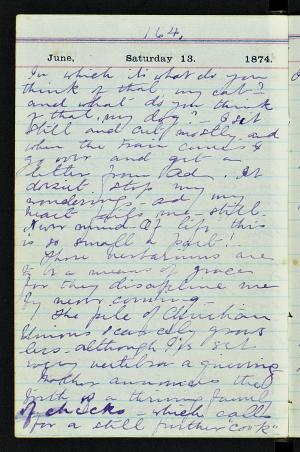 164.
June, Saturday 13. 1874.
In which it's what do you
think of that my cat?
and what do you think
of that, my dog? - I sit
still and cut mostly and
when the rain comes I
go over and get a
letter from Ad. It
doesn't stop my
wonderings - and my
heart fails me still.
Never mind. Of life this
is so small a part!
These herbariums are
to be a means of grace
for they discipline me
by never coming.
The pile of Christian
Unions scarcely grows
less - although I've set
every vertebra a grieving
Mother announces the
birth of a thriving family
of chicks - which calls
for a still further "cook"